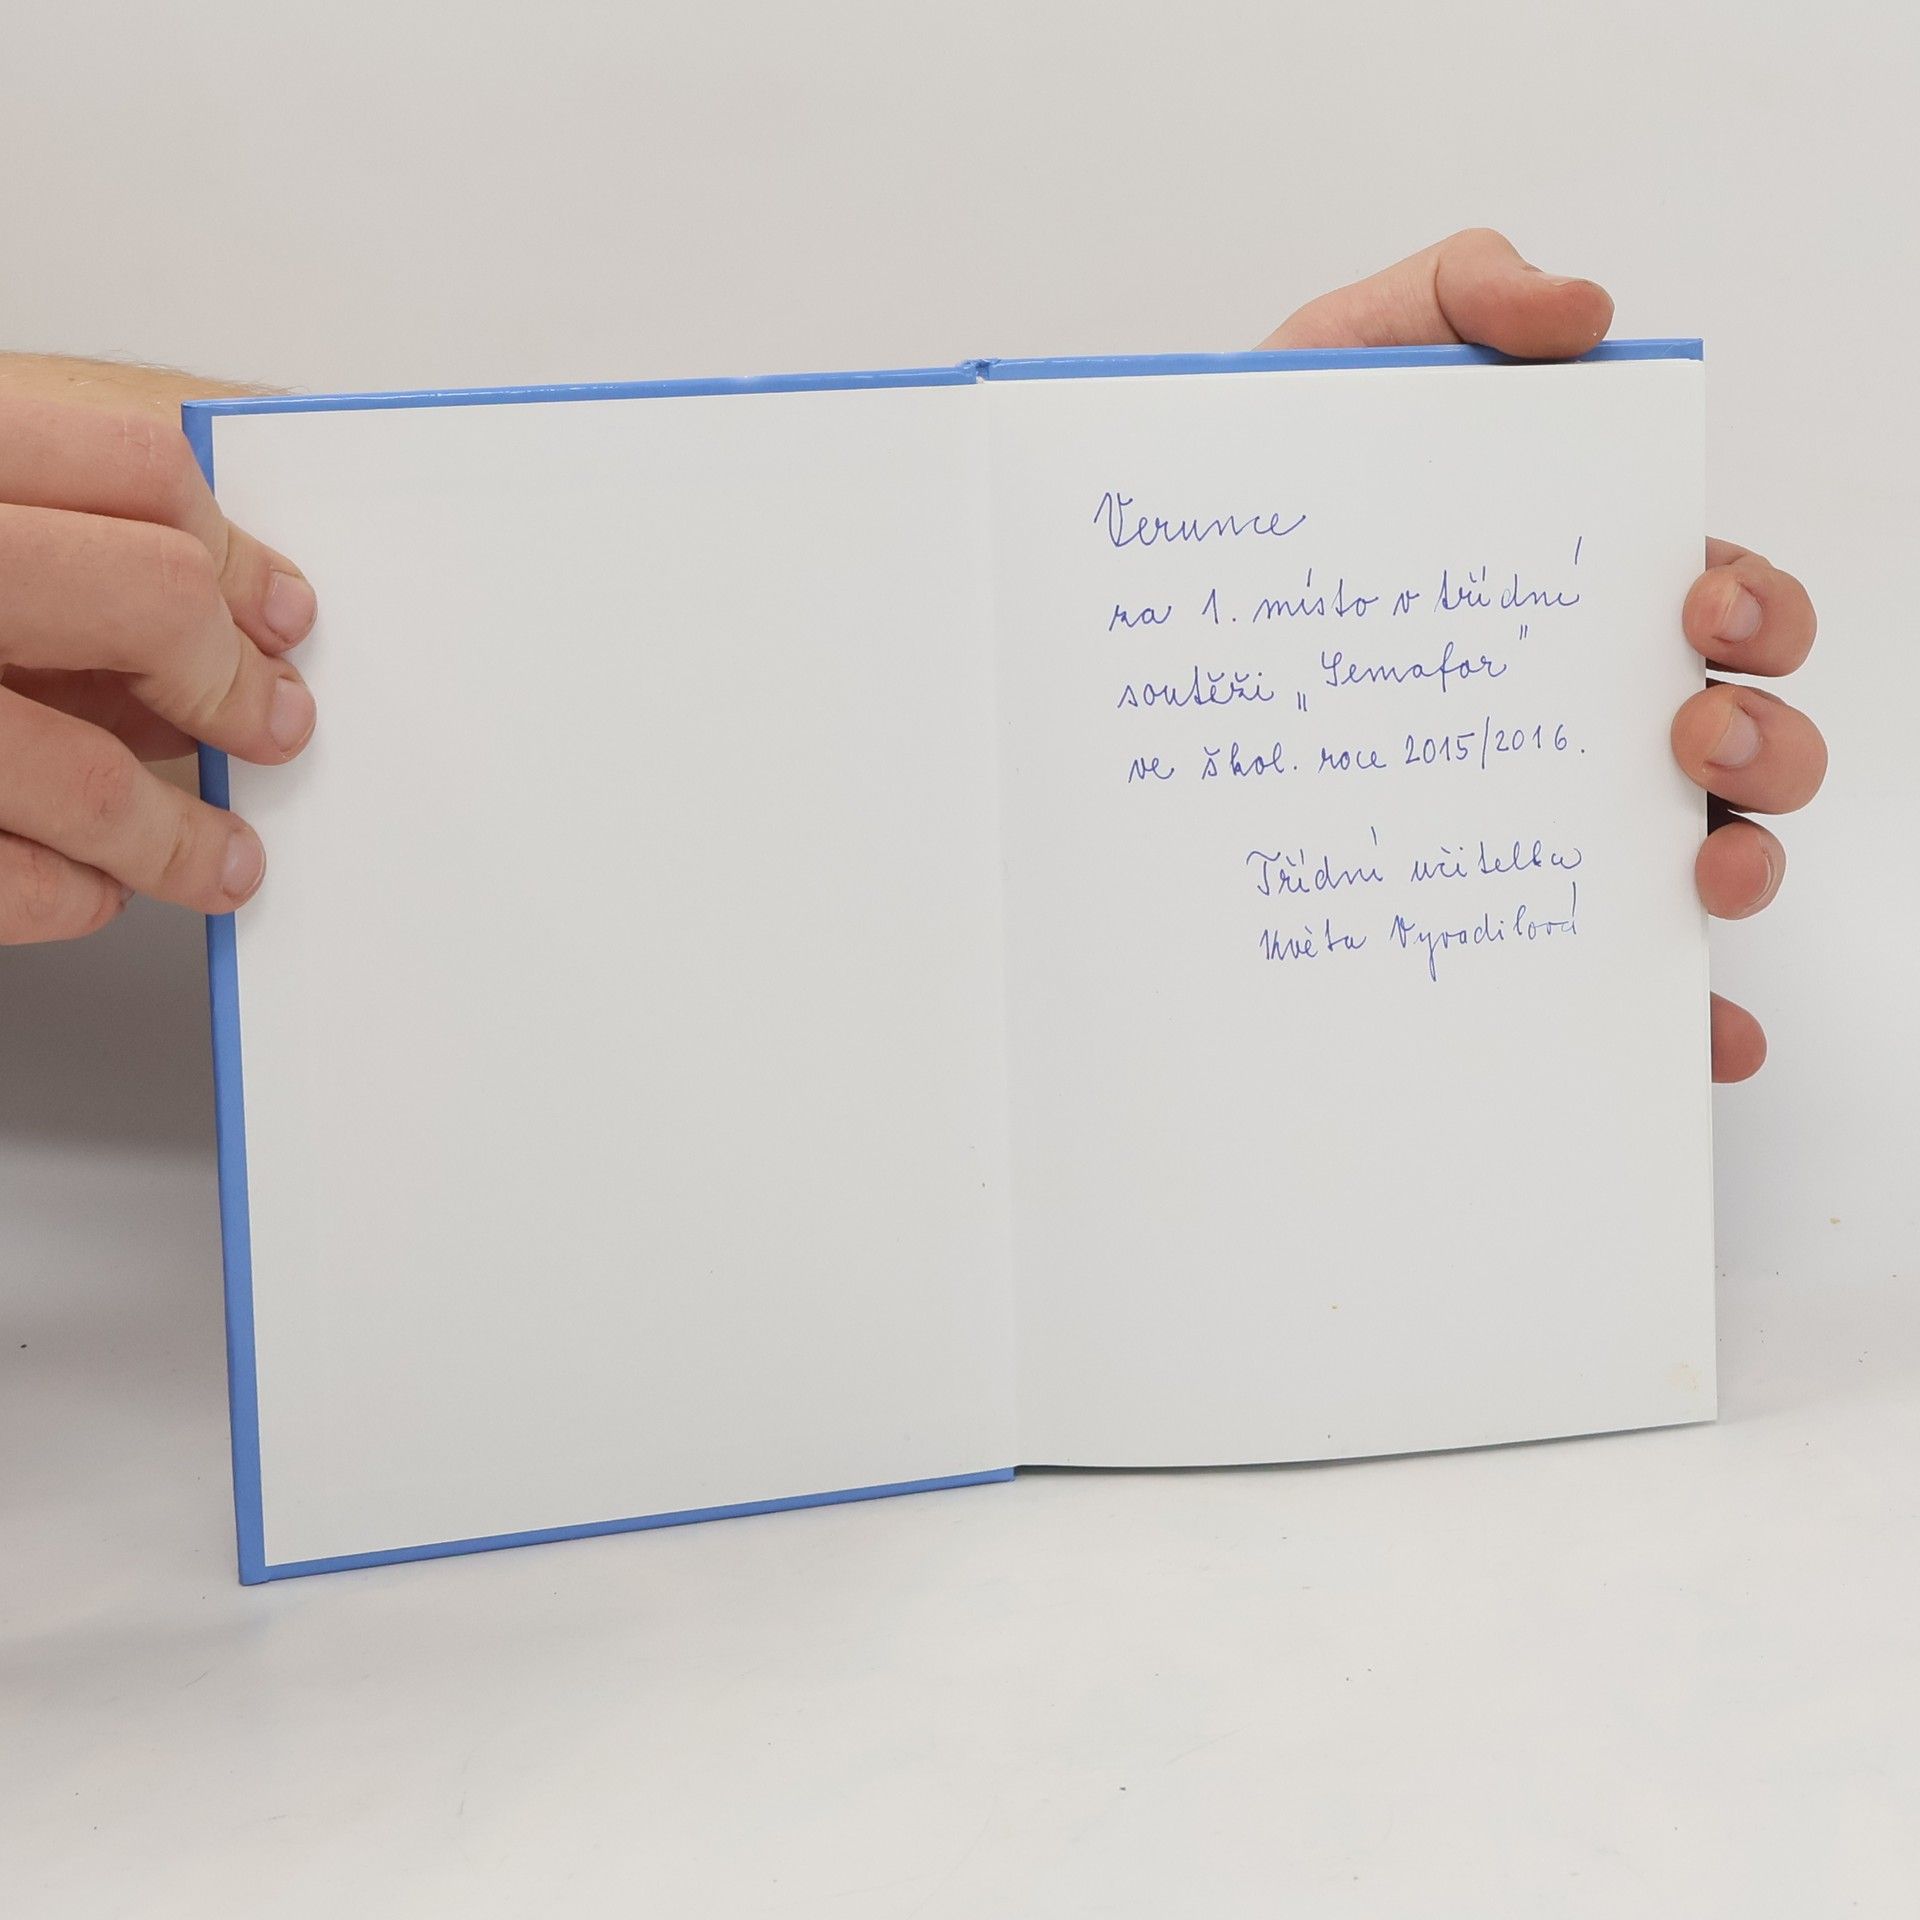 Verunce
za 1. místo v třídní
soutěži „Semafor"
ve škol. roce 2015/2016.
Třídní učitelka
Květa Vyvadilová